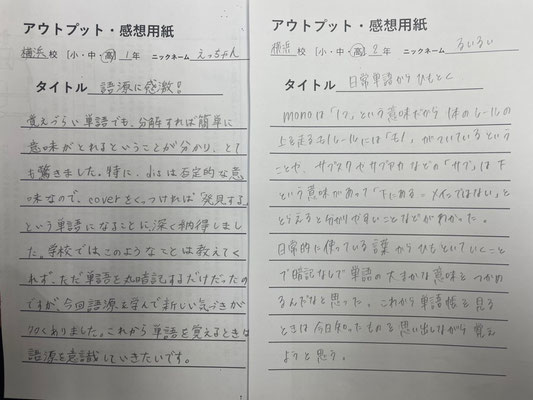 アウトプット・感想用紙
横浜 校 「小・中・高」 1年 ニックネーム えっちゃん
タイトル 語源に感激!
覚えづらい単語でも、分解すれば簡単に
意味がとれるということが分かり、とて
も驚きました。特に、disは否定的な意
味なので、coverをくっつければ「発見する」
という単語になることに深く納得しまし
た。学校ではこのようなことは教えてく
れず、ただ単語を丸暗記するだけだったの
ですが、今回語源を学んで新しい気づきが
多くありました。これから単語を覚えるときは
語源を意識していきたいです。
アウトプット・感想用紙
横浜 校 「小・中・高」 2年 ニックネーム るいるい
タイトル 日常単語からひもとく
monoは「1つ」という意味だから 1本のレールの
上を走るモノレールには「モノ」がついているという
ことや、サブスクやサブアカなどの「サブ」は下
という意味があって「下にある=メインではない」と
とらえると分かりやすいことなどがわかった。
日常的に使っている言葉からひもといていくこと
で暗記なしで単語の大まかな意味をつかめ
るんだなと思った。これから単語帳を見る
ときは今日知ったものを思い出しながら覚え
ようと思う。